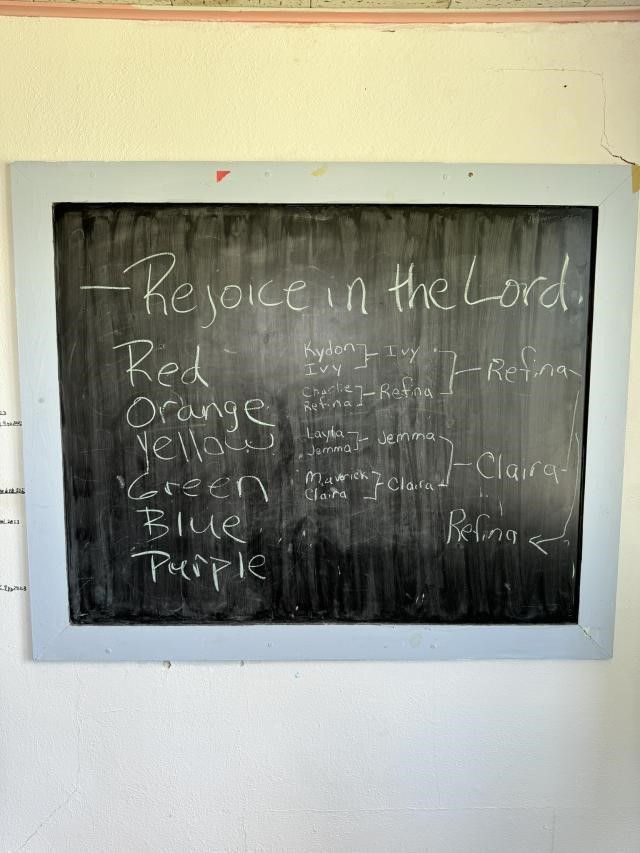 — Rejoice in the Lord.
Red
Orange
Yellow
Green
Blue
Purple
Kydon
Ivy
Ivy
Charlie
Refina
Refina
Refina
Layla
Jemma
Jemma
Maverick
Claira
Claira
Claira
Refina